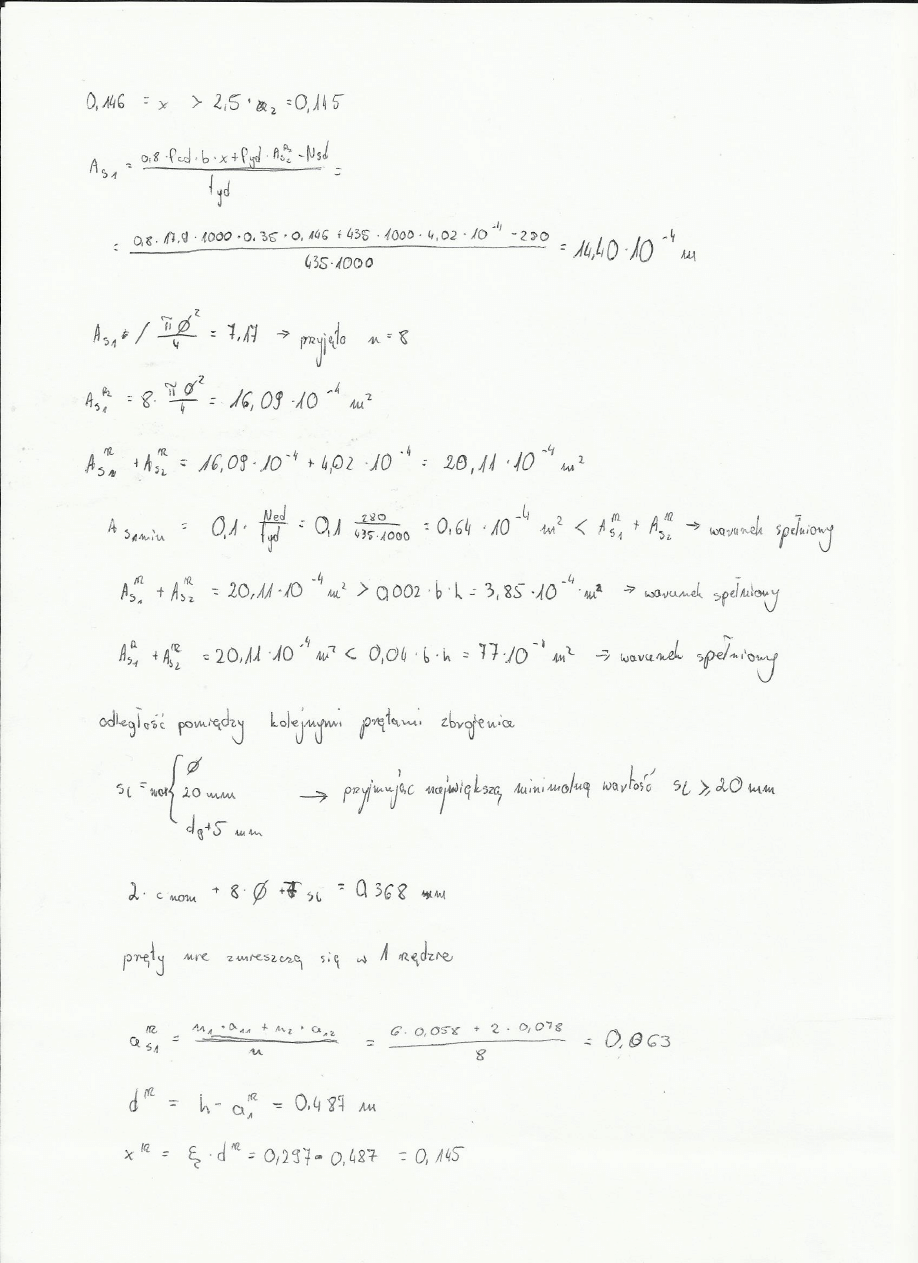 0,146 = x > 2,5 · a₂ = 0,145
A_S1 = (0,8 · fcd · b · x + fyd · A_S2^R - Nsd) / fyd =
= (0,8 · 17,9 · 1000 · 0,35 · 0,146 + 435 · 1000 · 4,02 · 10⁻⁴ - 280) / (435 · 1000) = 14,40 · 10⁻⁴ m
A_S1 / (πø²/4) = 7,17 → przyjęto n = 8
A_S1^R = 8 · πø²/4 = 16,09 · 10⁻⁴ m²
A_S1^R + A_S2^R = 16,09 · 10⁻⁴ + 4,02 · 10⁻⁴ = 20,11 · 10⁻⁴ m²
A_S1min = 0,1 · Ned/fyd = 0,1 280/(435·1000) = 0,64 · 10⁻⁴ m² < A_S1^R + A_S2^R → warunek spełniony
A_S1^R + A_S2^R = 20,11 · 10⁻⁴ m² > 0,002 · b · h = 3,85 · 10⁻⁴ · m² → warunek spełniony
A_S1^R + A_S2^R = 20,11 · 10⁻⁴ m² < 0,04 · b · h = 77 · 10⁻⁴ m² → warunek spełniony
odległość pomiędzy kolejnymi prętami zbrojenia
s_l = max { ø
20 mm → przyjmując największą minimalną wartość s_l ≥ 20 mm
dg+5 mm
2 · c nom + 8 · ø + 7 s_l = 0,368 mm
pręty nie zmieszczą się w 1 rzędzie
a_S1^R = (n₁ · a₁₁ + n₂ · a₁₂) / n = (6 · 0,058 + 2 · 0,078) / 8 = 0,063
d^R = h - a₁^R = 0,487 m
x^R = ξ · d^R = 0,297 · 0,487 = 0,145